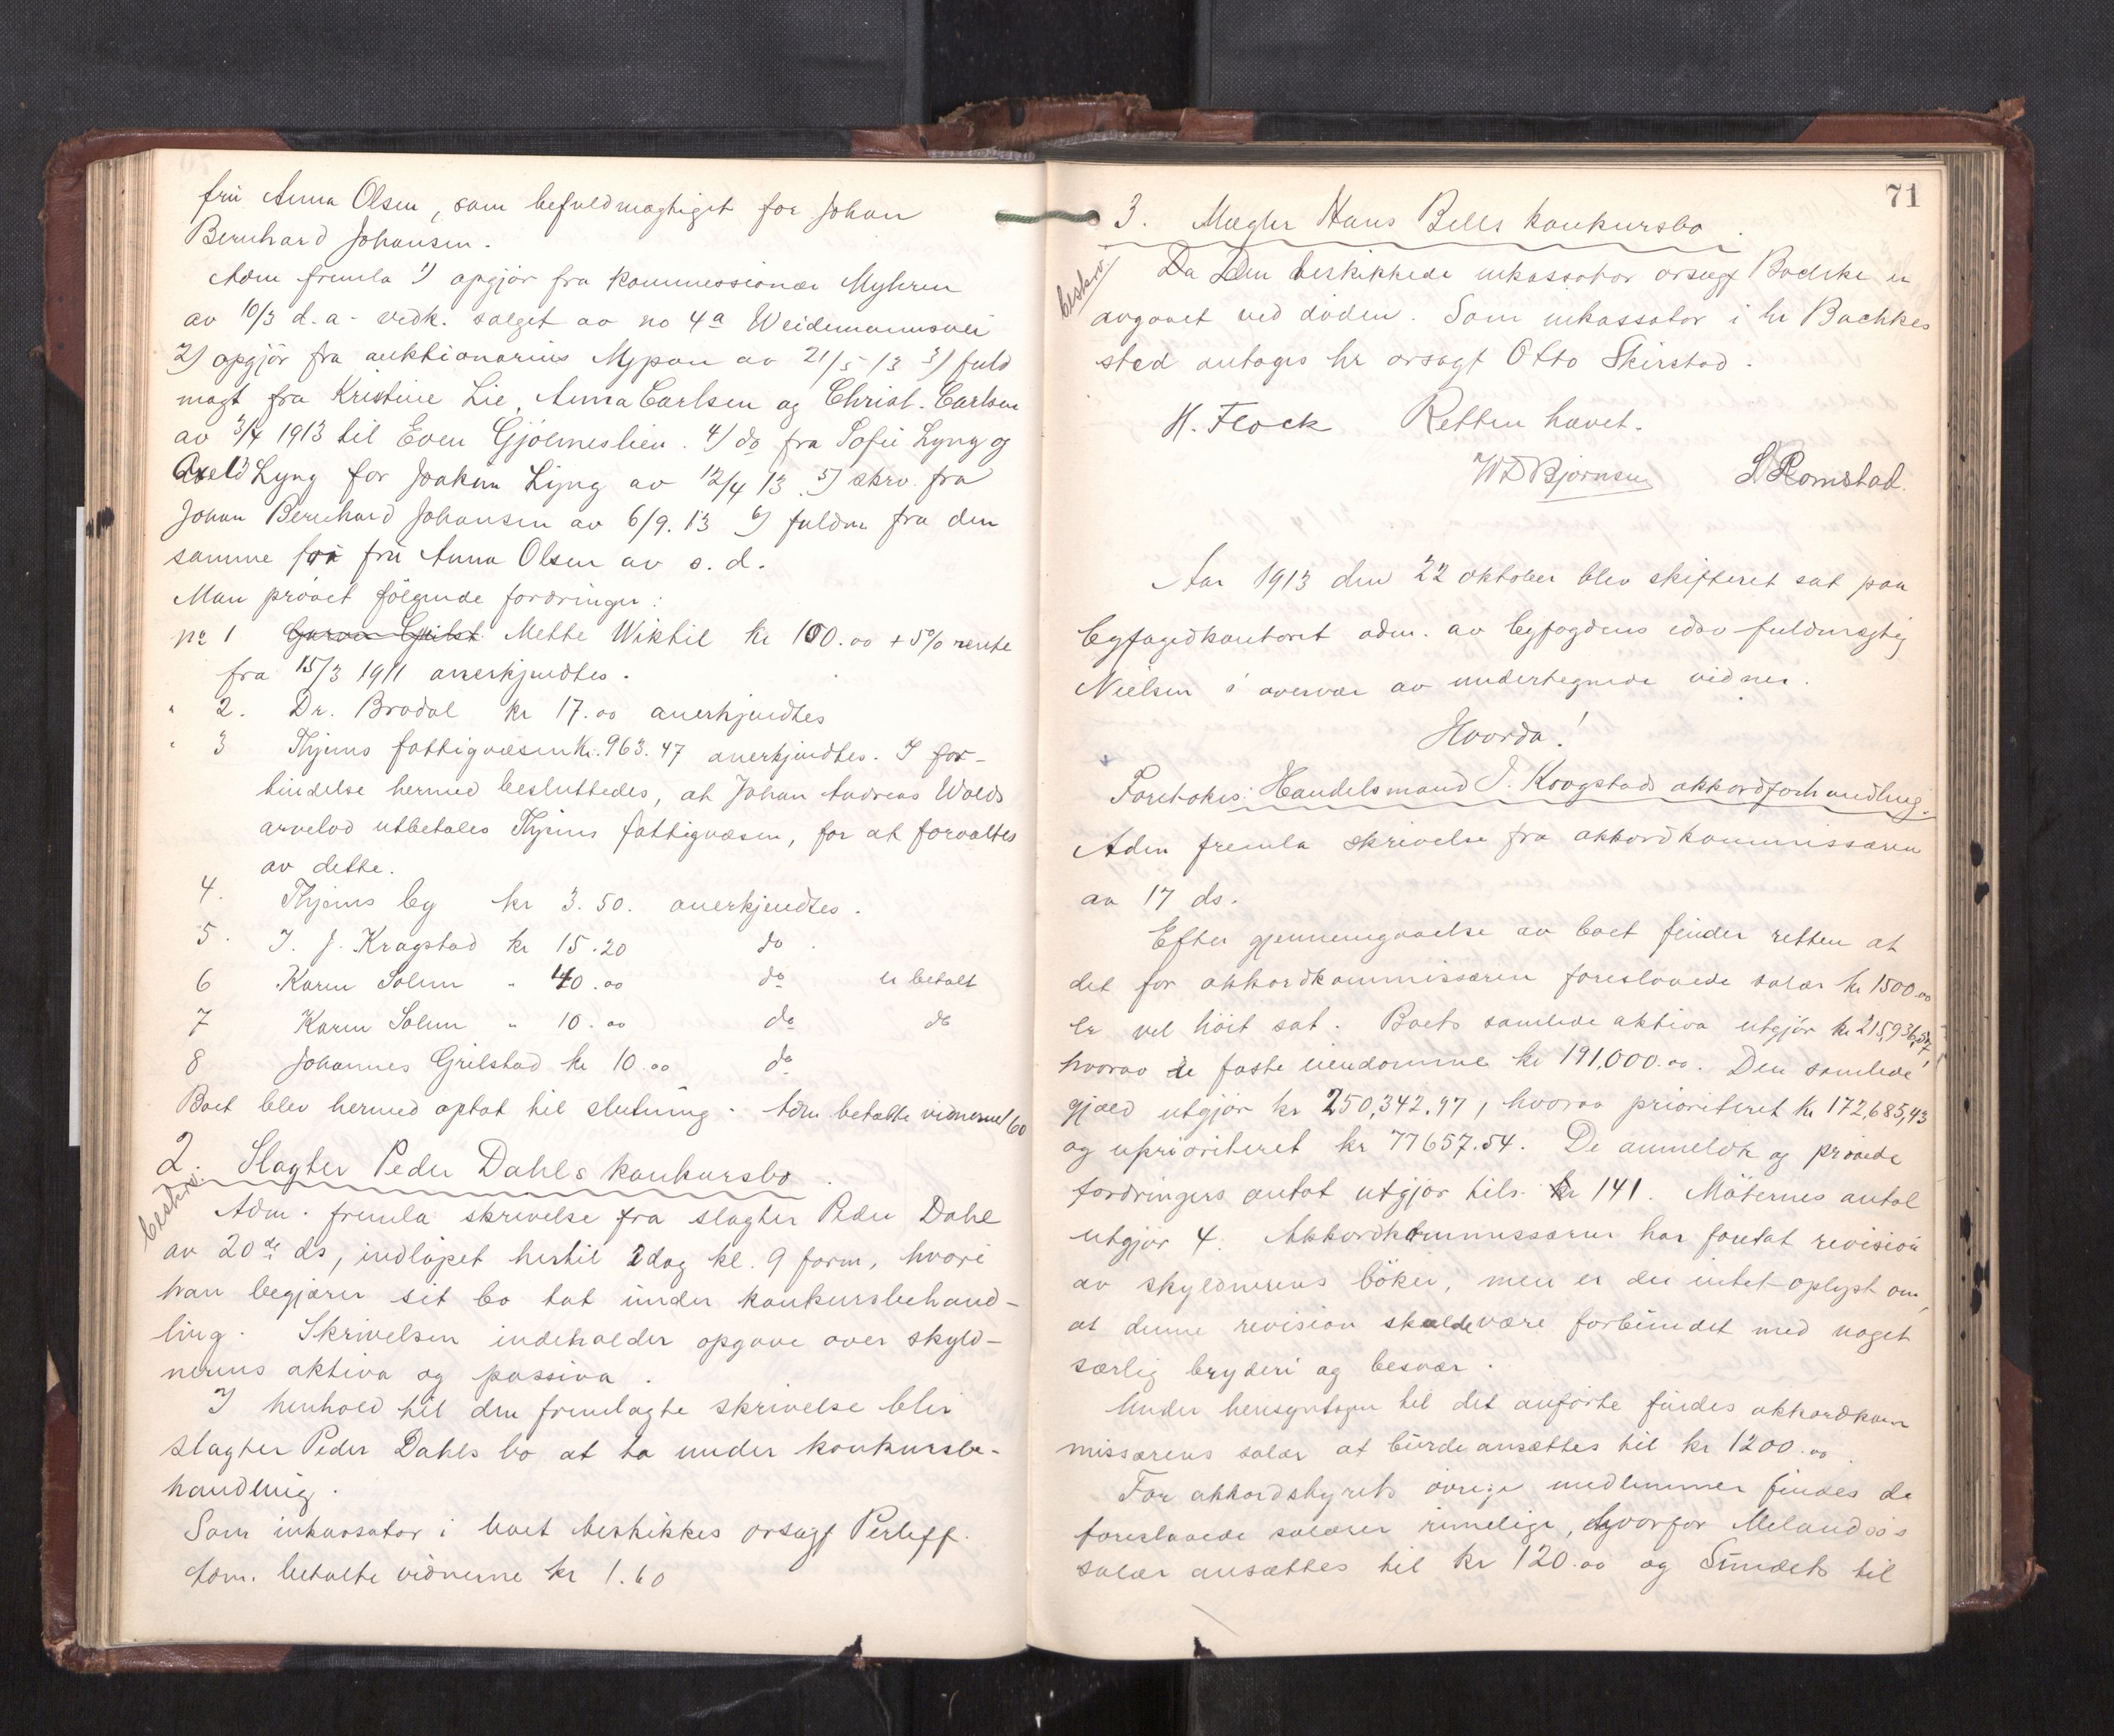 fru Anna Olsen, som befuldmægtiget for Johan
Bernhard Johansen.
Adm fremla 1) opgjør fra kommissionær Myhren
av 10/3 d.a. vedk. salget av no 4a Weidemannsvei
2) opgjør fra auktionarius Mjpan av 21/5 13 3) fuld
magt fra Kristine Lie, Anna Carlsen og Christ. Carlsen
av 3/4 1913 til Even Gjølmeslien. 4) do fra Sofie Lyng og
Axel Lyng for Joakim Lyng av 12/4 13. 5) skrv. fra
Johan Bernhard Johansen av 6/9. 13 6) fuldm fra den
samme for fru Anna Olsen av s. d.
Man prøvet følgende fordringer:
No 1 Mette Wiktil kr 100.00 + 5% rente
fra 15/3 1911 anerkjendtes.
" 2. Dr. Bradal kr 17.00 anerkjendtes
" 3 Thjems fattigvæsen kr. 963.47 anerkjendtes. I for-
bindelse hermed besluttedes, at Johan Andreas Wolds
arvelod utbetales Thjems fattigvæsen, for at forvaltes
av dette.
4. Thjems by kr 3.50. anerkjendtes.
5. I. J. Kragstad kr 15.20 do.
6 Karen Solem " 40.00 do er betalt
7 Karen Solem " 10.00 do do
8 Johannes Grilstad kr 10.00 do
Boet blev hermed optat til slutning. Adm. betalte vidnerne 1/60
2. Slagter Peder Dahls konkursbo.
beskrv.
Adm. fremla skrivelse fra slagter Peder Dahl
av 20de ds, indløpet hertil idag kl. 9 form, hvori
han begjærer sit bo tat under konkursbehand-
ling. Skrivelsen indeholder opgave over skyld-
nerens aktiva og passiva.
I henhold til den fremlagte skrivelse blir
slagter Peder Dahls bo at ta under konkursbe-
handling.
Som inkassator i boet beskikkes orsagf Perleff.
Adm. betalte vidnerne kr 1.60
71
3. Mægler Hans Bells konkursbo.
beskrv.
Da Den beskikkede inkassator orsagf Bachke er
avgaaet ved døden. Som inkassator i hr Bachkes
sted antages hr orsagf Otto Skirstad.
H. Flock Retten hævet.
W D Bjørnsen S Romstad.
Aar 1913 den 22 oktober blev skifteret sat paa
byfogedkontoret adm. av byfogdens edsv fuldmægtig
Nielsen i overvær av undertegnede vidner.
Hvorda!
Foretokes: Handelsmand I. Krogstads akkordforhandling.
Adm fremla skrivelse fra akkordkommissæren
av 17 ds.
Efter gjennemgaaelse av boet finder retten at
det for akkordkommissæren foreslaaede salær kr 1500.00
er vel høit sat. Boets samlede aktiva utgjør kr 215,936,27,
hvorav de faste eiendomme kr 191,000.00. Den samlede
gjæld utgjør kr 250,342.97, hvorav prioriteret kr 172,685,43
og uprioriteret kr 77657.54. De anmeldte og prøvede
fordringers antal utgjør tils. 141. Møternes antal
utgjør 4. Akkordkommissæren har foretat revision
av skyldnerens bøker, men er der intet oplyst om,
at denne revision skulde være forbundet med noget
særlig bryderi og besvær.
Under hensyntagen til det anførte findes akkordkom
missærens salær at burde ansættes til kr 1200.00.
For akkordstyrets øvrige medlemmer findes de
foreslaaede salærer rimelige, hvorfor Melandsøs
salær ansættes til kr 120.00 og Sundets til